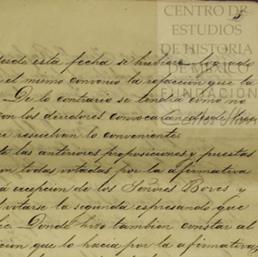 CENTRO DE
ESTUDIOS
DE HISTORIA
DE MÉXICO
FUNDACIÓN
desde esta fecha se hubiere logrado
el mismo convenio la refacción que la
De lo contrario se tendrá como no
los directores convocarán desde luego
resuelvan lo conveniente
las anteriores proposiciones y puestas
todas votadas por la afirmativa
á excepcion de los Señores Bores y
votarse la segunda espresando que
Donde hizo tambien constar al
cion que lo hacia por la afirmativa